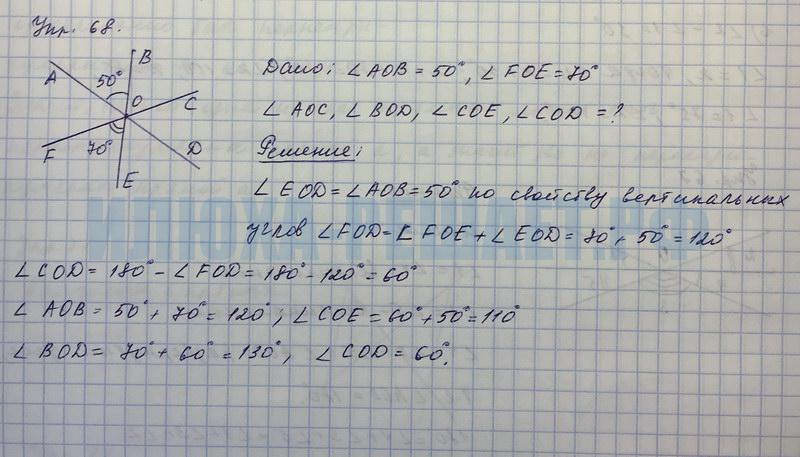 Упр. 68.
A
B
50°
O
C
F
70°
D
E
Дано: ∠AOB = 50°, ∠FOE = 70°
∠AOC, ∠BOD, ∠COE, ∠COD = ?
Решение:
∠EOD = ∠AOB = 50° по свойству вертикальных
углов ∠FOD = ∠FOE + ∠EOD = 70° + 50° = 120°
∠COD = 180° - ∠FOD = 180° - 120° = 60°
∠AOB = 50° + 70° = 120°; ∠COE = 60° + 50° = 110°
∠BOD = 70° + 60° = 130°, ∠COD = 60°.